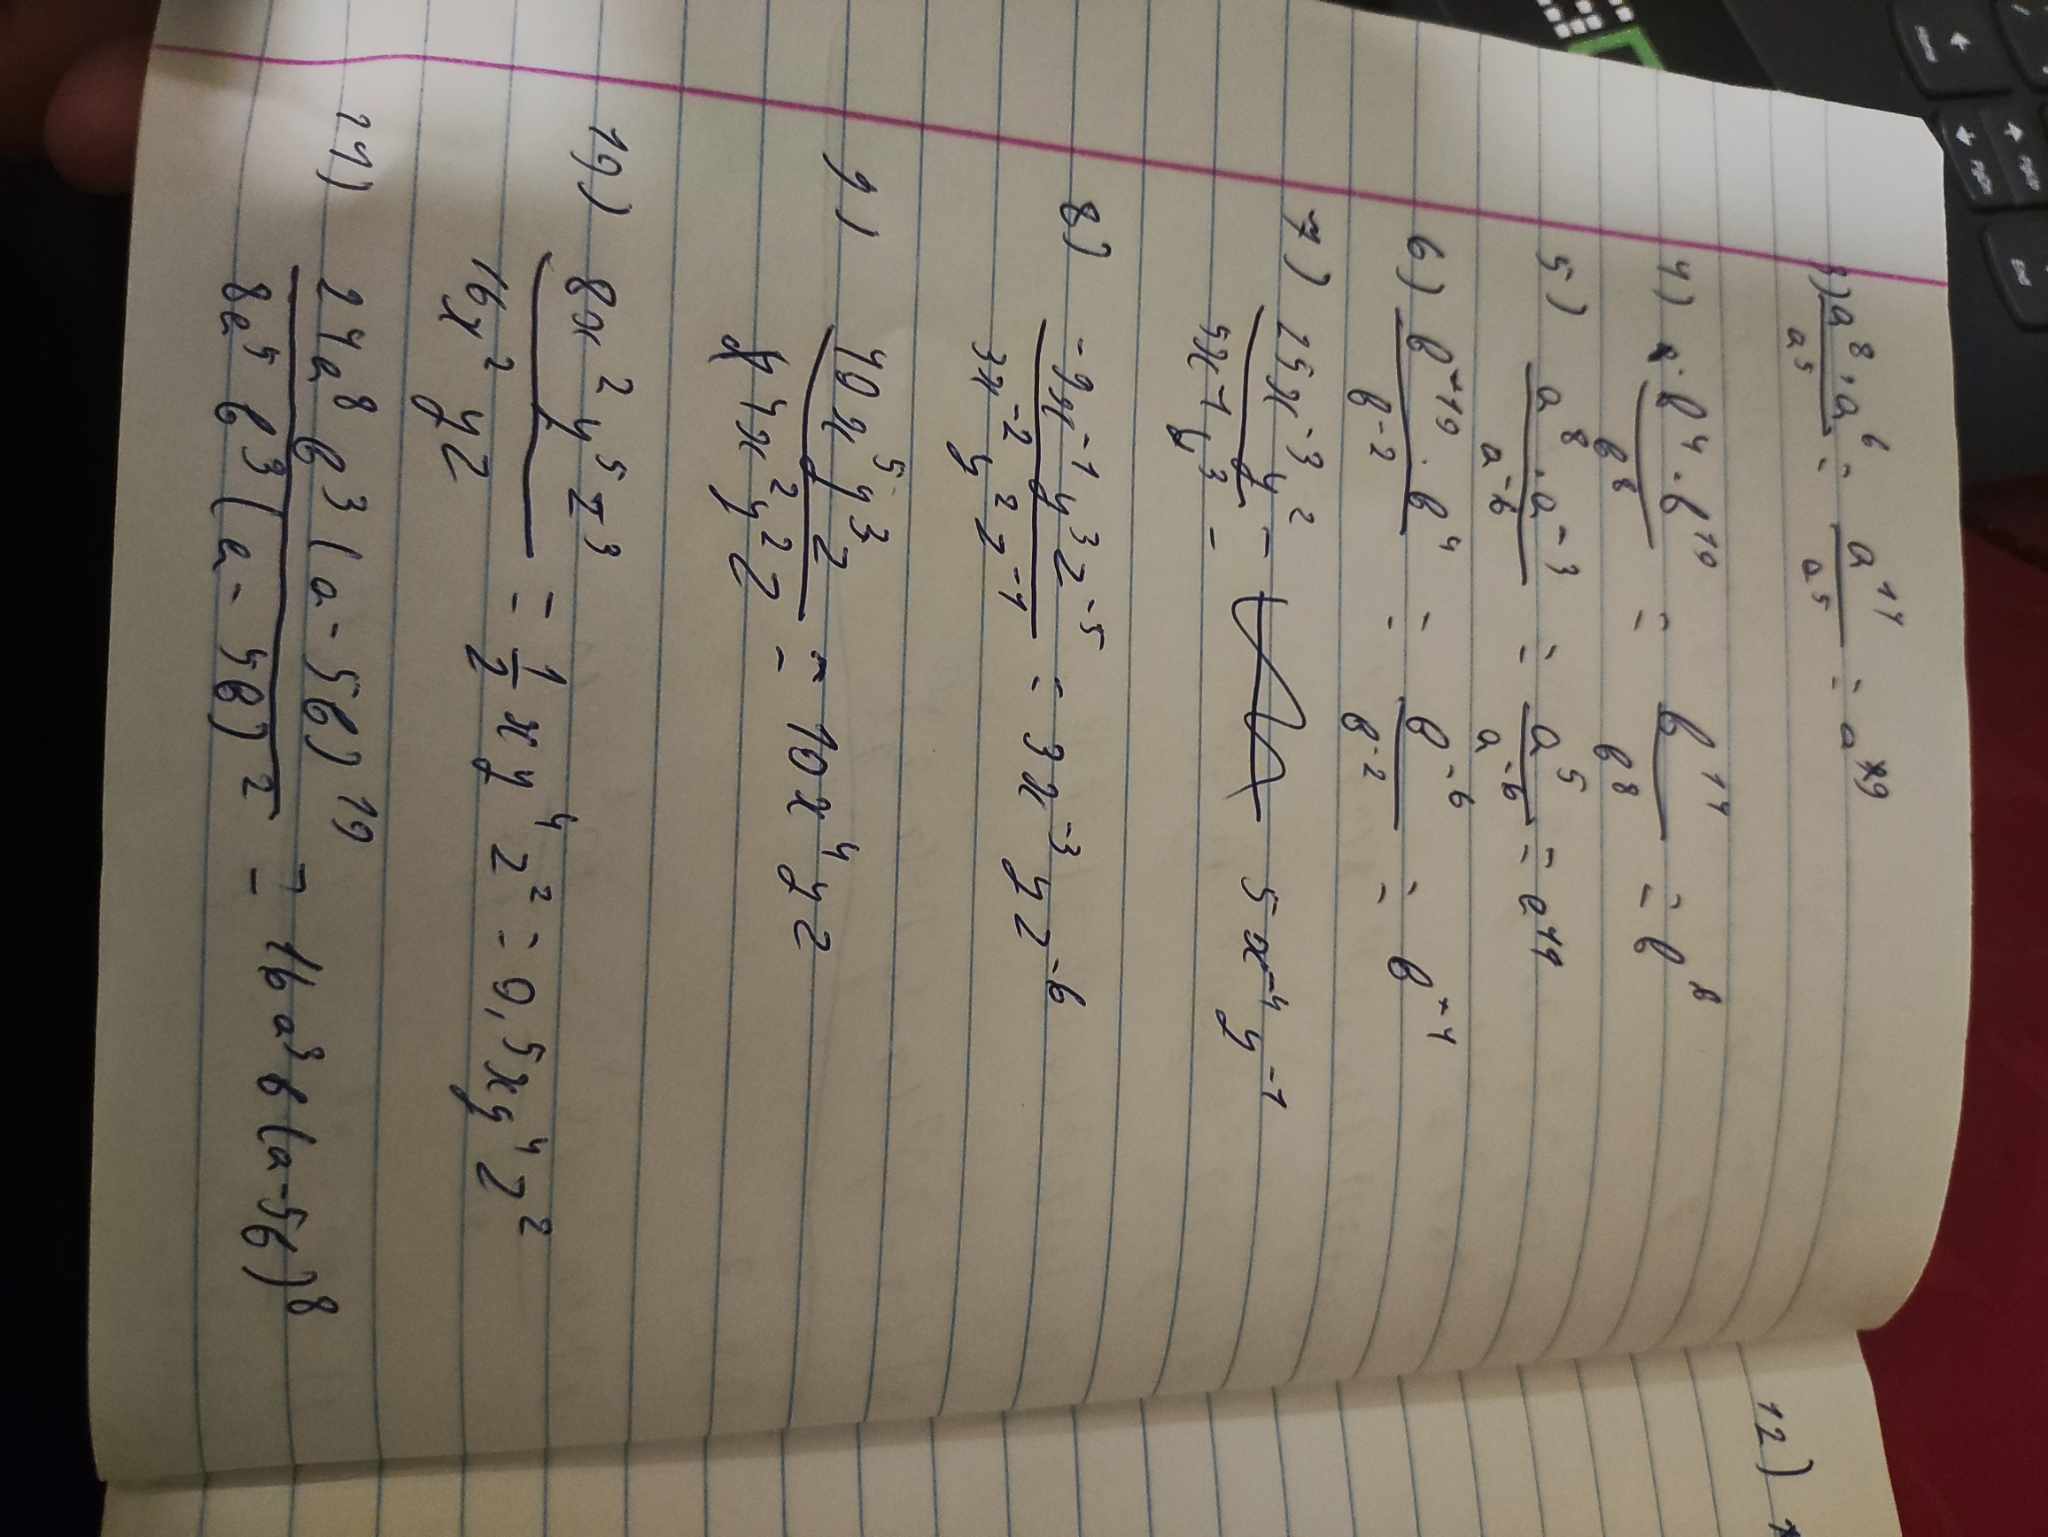 3) a⁸·a⁶/a⁵ = a¹⁴/a⁵ = a⁹
4) b⁴·b¹⁰/b⁸ = b¹⁴/b⁸ = b⁶
5) a⁸·a⁻³/a⁻⁶ = a⁵/a⁻⁶ = a¹¹
6) b⁻¹⁰·b⁴/b⁻² = b⁻⁶/b⁻² = b⁻⁴
7) 25x⁻³y²/5x⁻¹y³ = 5x⁻⁴y⁻¹
8) -9x⁻¹y³z⁻⁵/3x⁻²y²z⁻¹ = 3x⁻³yz⁻⁶
9) 40x⁵y³z/4x²y²z = 10x⁴yz
10) 8x²y⁵z³/16x²yz = 1/2xy⁴z² = 0,5xy⁴z²
11) 24a⁸b³(a-5b)¹⁰/8a⁵b³(a-5b)² = 16a³b(a-5b)⁸
12)